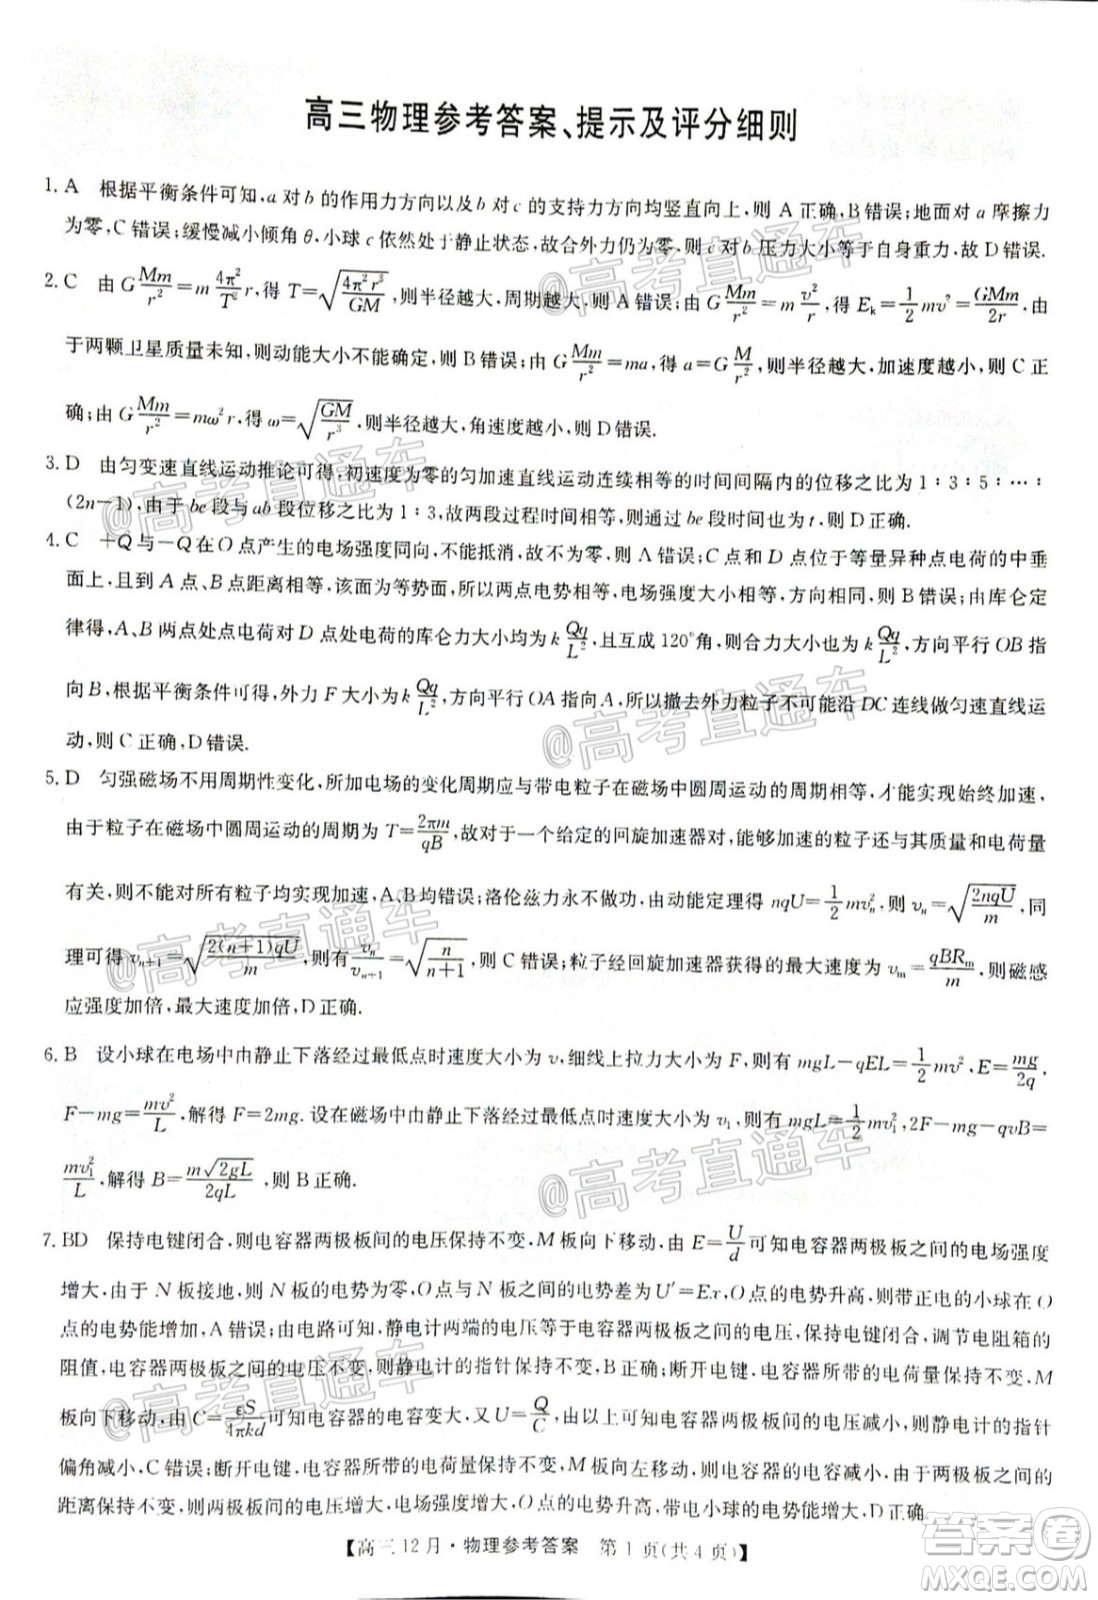 高三物理参考答案、提示及评分细则
1. A 根据平衡条件可知,a 对 b 的作用力方向以及 b 对 c 的支持力方向均竖直向上,则 A 正确,B 错误;地面对 a 摩擦力
为零,C 错误;缓慢减小倾角 θ,小球 c 依然处于静止状态,故合外力仍为零,则 c 对 b 压力大小等于自身重力,故 D 错误.
2. C 由 G\frac{Mm}{r^2}=m\frac{4π^2}{T^2}r,得 T=\sqrt{\frac{4π^2r^3}{GM}},则半径越大,周期越大,则 A 错误;由 G\frac{Mm}{r^2}=m\frac{v^2}{r},得 E_k=\frac{1}{2}mv^2=\frac{GMm}{2r}.由
于两颗卫星质量未知,则动能大小不能确定,则 B 错误;由 G\frac{Mm}{r^2}=ma,得 a=G\frac{M}{r^2},则半径越大,加速度越小,则 C 正
确;由 G\frac{Mm}{r^2}=mω^2r,得 ω=\sqrt{\frac{GM}{r^3}},则半径越大,角速度越小,则 D 错误.
3. D 由匀变速直线运动推论可得,初速度为零的匀加速直线运动连续相等的时间间隔内的位移之比为 1∶3∶5∶⋯∶
(2n−1),由于 bc 段与 ab 段位移之比为 1∶3,故两段过程时间相等,则通过 bc 段时间也为 t,则 D 正确.
4. C +Q 与 −Q 在 O 点产生的电场强度同向,不能抵消,故不为零,则 A 错误;C 点和 D 点位于等量异种点电荷的中垂
面上,且到 A 点、B 点距离相等,该面为等势面,所以两点电势相等,电场强度大小相等,方向相同,则 B 错误;由库仑定
律得,A、B 两点处点电荷对 D 点处电荷的库仑力大小均为 k\frac{Qq}{L^2},且互成 120°角,则合力大小也为 k\frac{Qq}{L^2},方向平行 OB 指
向 B,根据平衡条件可得,外力 F 大小为 k\frac{Qq}{L^2},方向平行 OA 指向 A;所以撤去外力粒子不可能沿 DC 连线做匀速直线运
动,则 C 正确,D 错误.
5. D 匀强磁场不用周期性变化,所加电场的变化周期应与带电粒子在磁场中圆周运动的周期相等,才能实现始终加速,
由于粒子在磁场中圆周运动的周期为 T=\frac{2πm}{qB},故对于一个给定的回旋加速器对,能够加速的粒子还与其质量和电荷量
有关,则不能对所有粒子均实现加速,A、B 均错误;洛伦兹力永不做功,由动能定理得 nqU=\frac{1}{2}mv_n^2,则 v_n=\sqrt{\frac{2nqU}{m}},同
理可得 v_{n+1}=\sqrt{\frac{2(n+1)qU}{m}},则有\frac{v_n}{v_{n+1}}=\sqrt{\frac{n}{n+1}},则 C 错误;粒子经回旋加速器获得的最大速度为 v_m=\frac{qBR_m}{m},则磁感
应强度加倍,最大速度加倍,D 正确.
6. B 设小球在电场中由静止下落经过最低点时速度大小为 v,细线上拉力大小为 F,则有 mgL−qEL=\frac{1}{2}mv^2,E=\frac{mg}{2q}.
F−mg=\frac{mv^2}{L},解得 F=2mg.设在磁场中由静止下落经过最低点时速度大小为 v_1,则有 mgL=\frac{1}{2}mv_1^2,2F−mg−qvB=
\frac{mv_1^2}{L},解得 B=\frac{m\sqrt{2gL}}{2qL},则 B 正确.
7. BD 保持电键闭合,则电容器两极板间的电压保持不变,M 板向下移动,由 E=\frac{U}{d}可知电容器两极板之间的电场强度
增大,由于 N 板接地,则 N 板的电势为零,O 点与 N 板之间的电势差为 U′=Ex,O 点的电势升高,则带正电的小球在 O
点的电势能增加,A 错误;由电路可知,静电计两端的电压等于电容器两极板之间的电压,保持电键闭合,调节电阻箱的
阻值,电容器两极板之间的电压不变,则静电计的指针保持不变,B 正确;断开电键,电容器所带的电荷量保持不变,M
板向下移动,由 C=\frac{εS}{4πkd}可知电容器的电容变大,又 U=\frac{Q}{C},由以上可知电容器两极板间的电压减小,则静电计的指针
偏角减小,C 错误;断开电键,电容器所带的电荷量保持不变,M 板向左移动,则电容器的电容减小,由于两极板之间的
距离保持不变,则两极板间的电压增大,电场强度增大,O 点的电势升高,带电小球的电势能增大,D 正确.
【高三 12 月·物理参考答案 第 1 页(共 4 页)】
@高考直通车
@高考直通车
@高考直通车
@高考直通车
@高考直通车
@高考直通车
答案圈
MXQE.COM